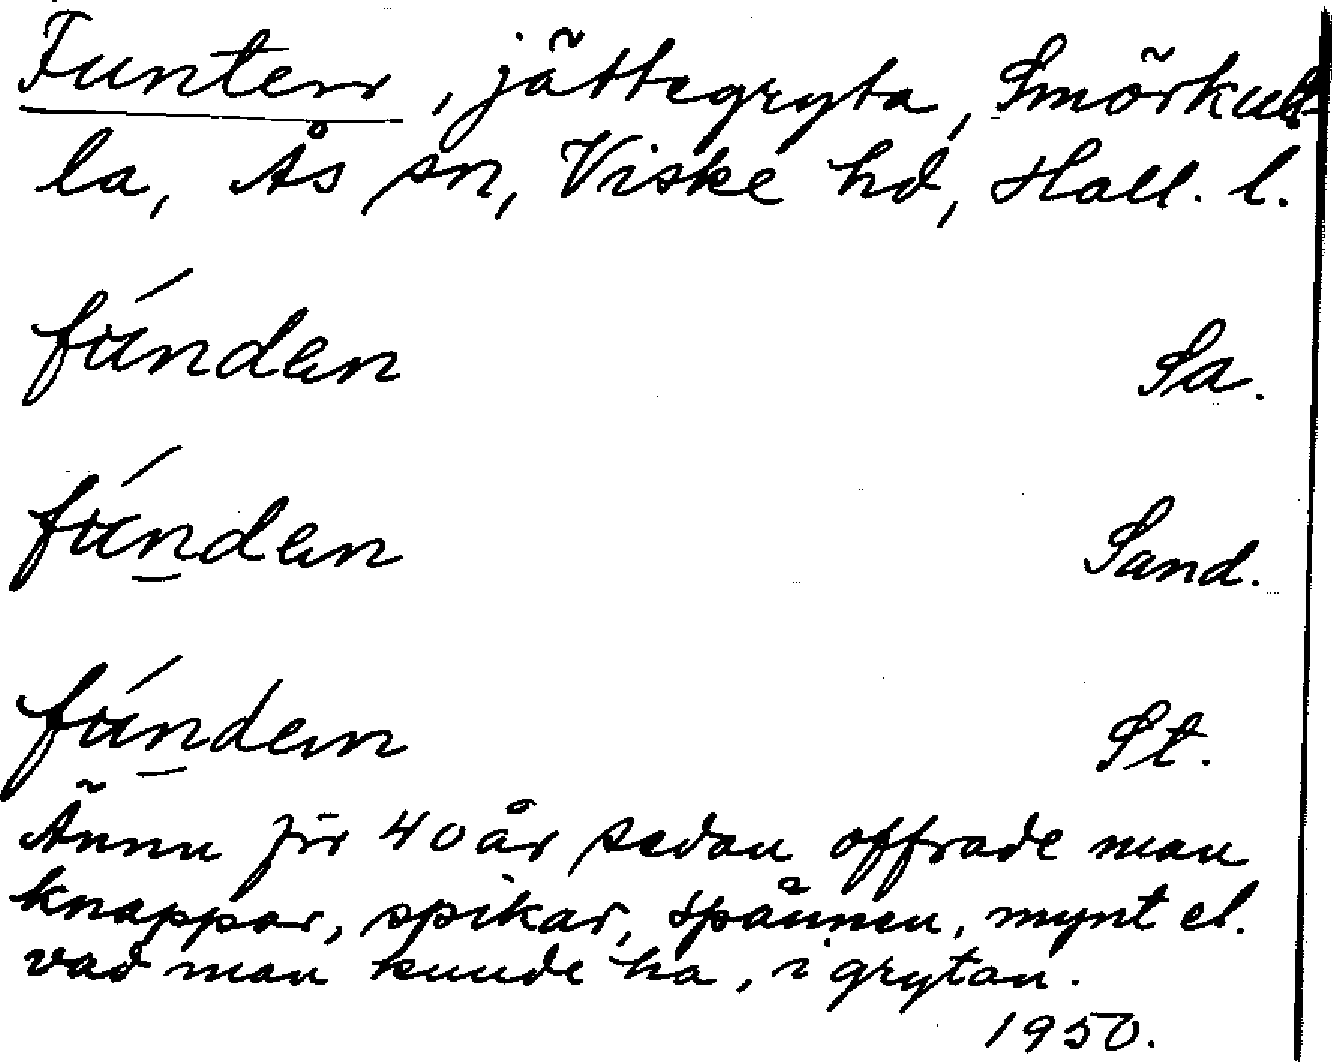 Funten, jättegryta, Smörkul-
la, Ås sn, Viske hd, Hall. l.
fúnden Sa.
fúnden Sand.
fúnden St.
Ännu för 40 år sedan offrade man
knappar, spikar, spännen, mynt el.
vad man kunde ha, i grytan.
1950.